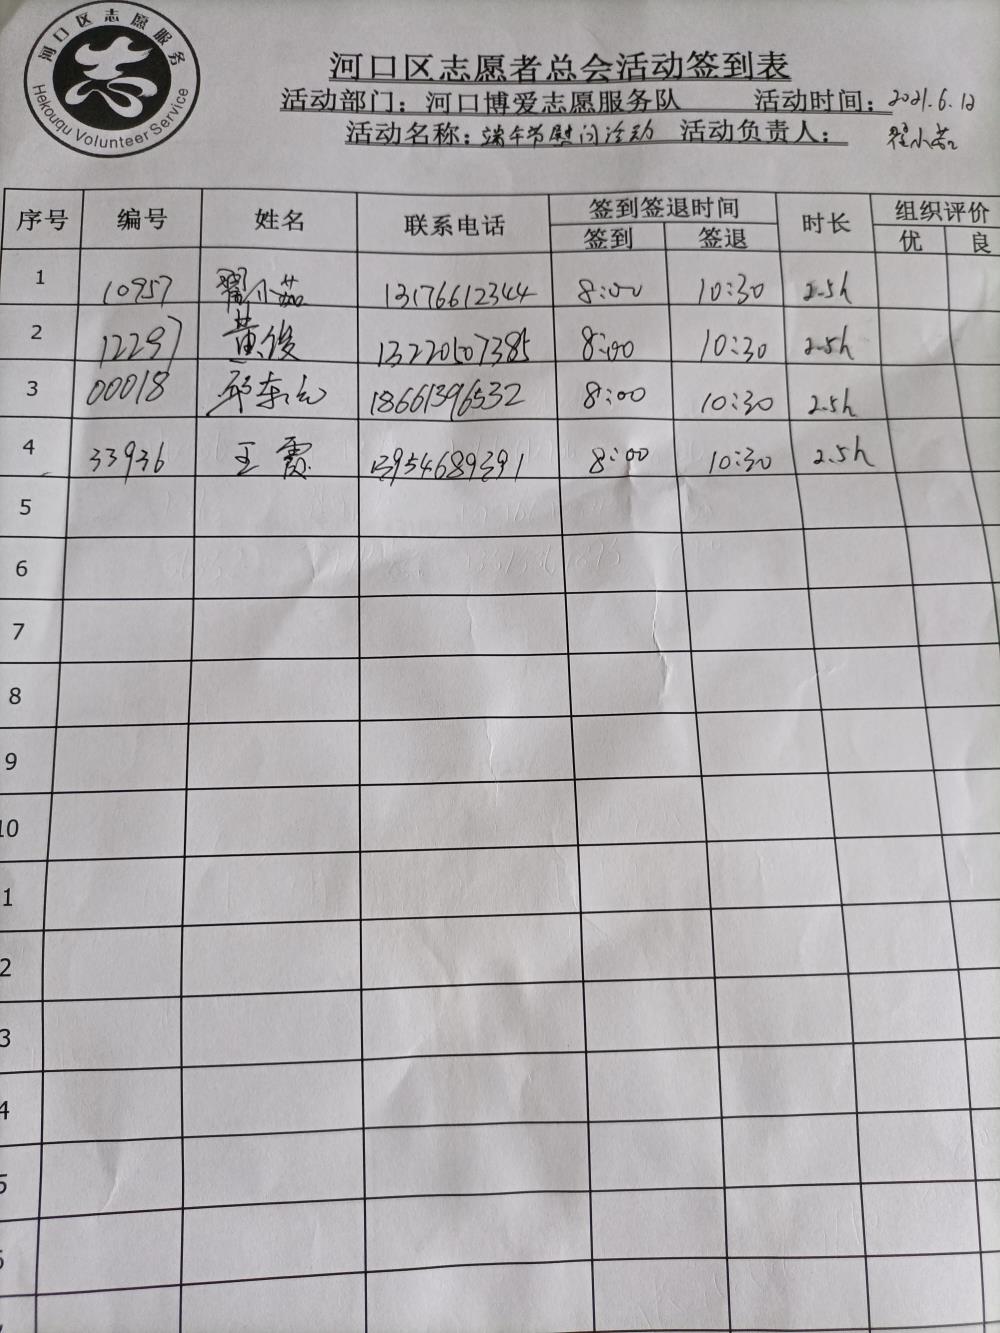 河口区志愿服务
Hekouqu Volunteer Service
河口区志愿者总会活动签到表
活动部门：河口博爱志愿服务队 活动时间：2021.6.12
活动名称：端午节慰问活动 活动负责人：翟小茹
序号 编号 姓名 联系电话 签到签退时间 时长 组织评价
签到 签退 优 良
1 10957 翟小茹 13176612344 8:00 10:30 2.5h
2 12297 黄俊 13220507385 8:00 10:30 2.5h
3 00018 18661396532 8:00 10:30 2.5h
4 33936 王霞 13954689391 8:00 10:30 2.5h
5
6
7
8
9
10
1
2
3
4
5
6